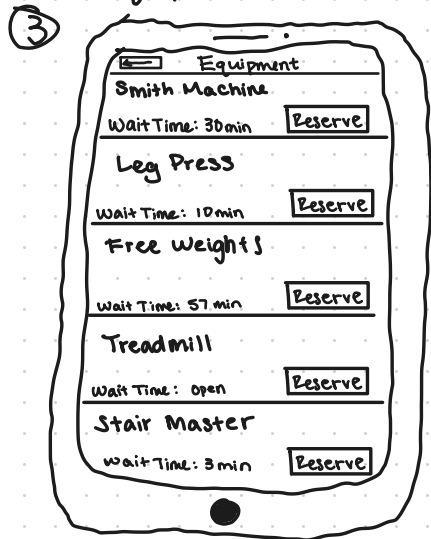 3
Equipment
Smith Machine
Wait Time: 30min
Reserve
Leg Press
Wait Time: 10min
Reserve
Free Weights
Wait Time: 57 min
Reserve
Treadmill
Wait Time: open
Reserve
Stair Master
Wait Time: 3 min
Reserve